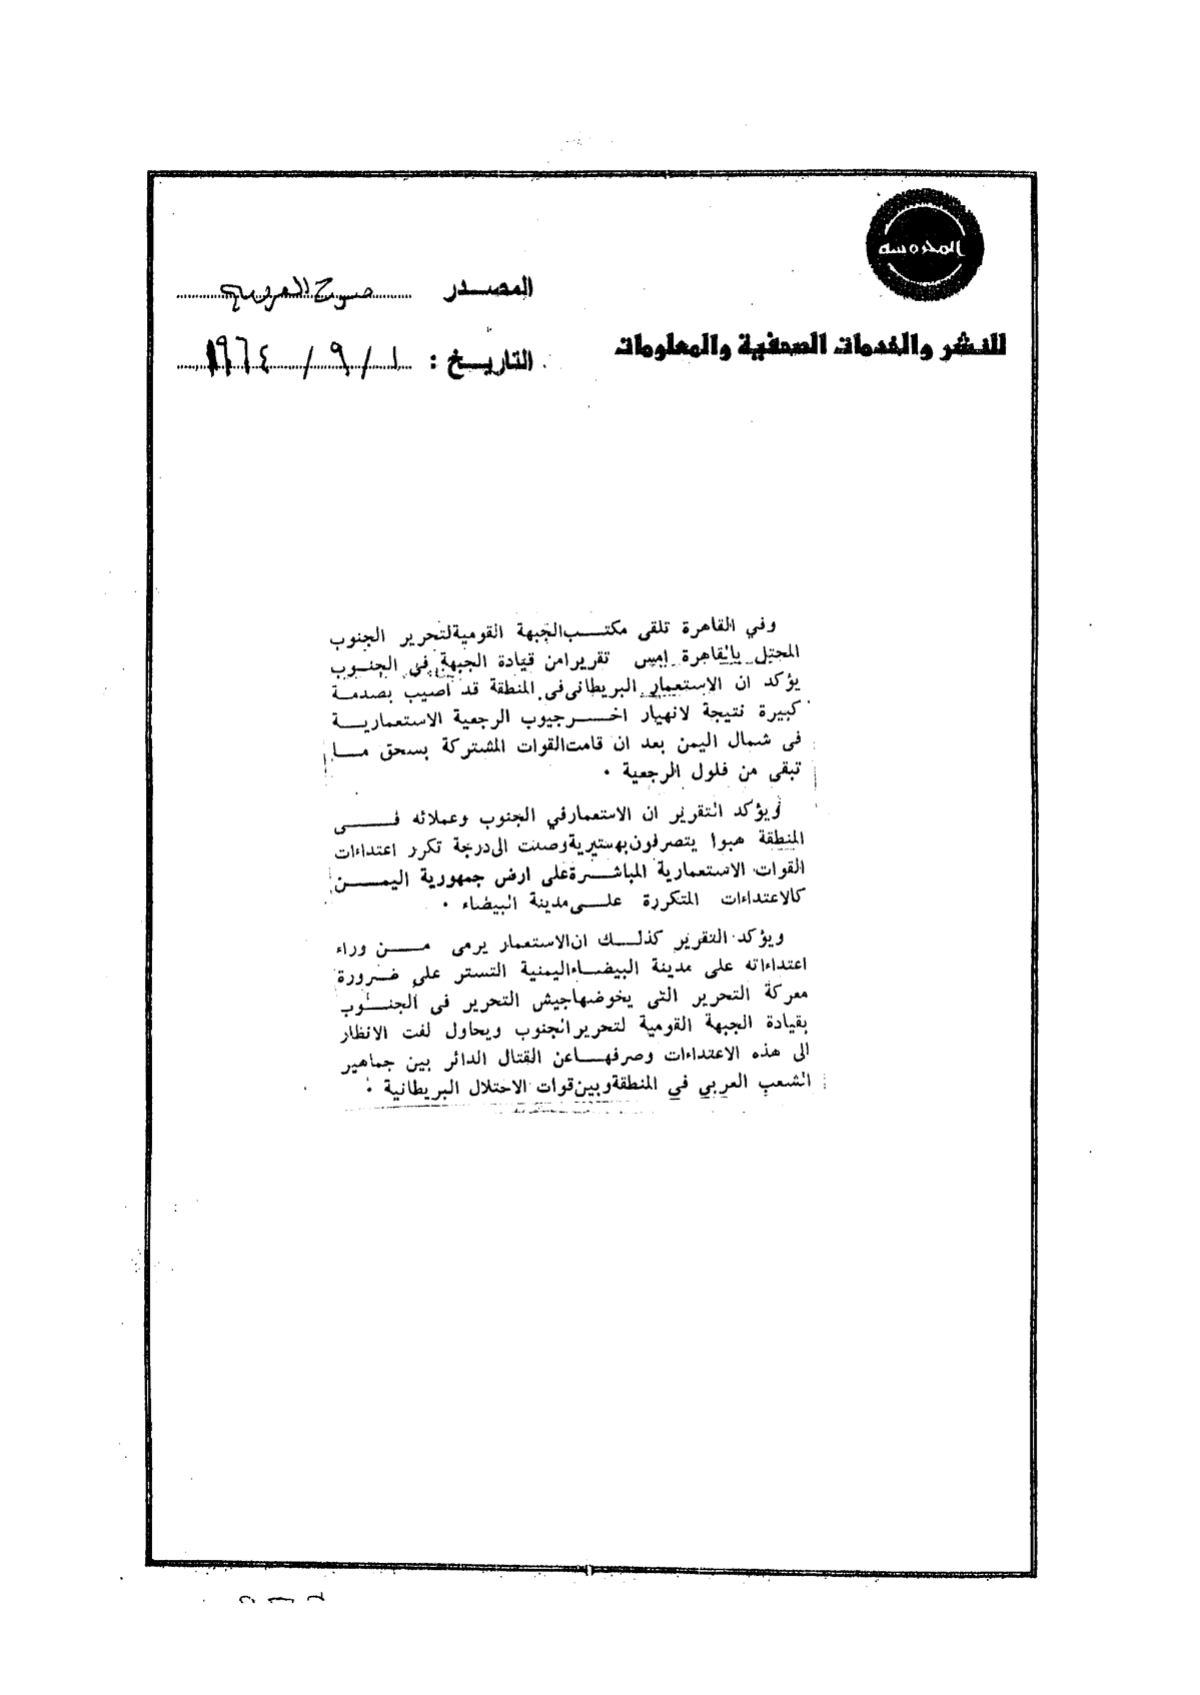 المحروسة
المصدر
صوت العروبة
للنشر والخدمات الصحفية والمعلومات
التاريخ : ١ / ٩ / ١٩٦٤
وفي القاهرة تلقى مكتب الجبهة القومية لتحرير الجنوب
المحتل بالقاهرة امس تقريرا من قيادة الجبهة في الجنوب
يؤكد ان الاستعمار البريطانى فى المنطقة قد اصيب بصدمة
كبيرة نتيجة لانهيار اخر جيوب الرجعية الاستعمارية
فى شمال اليمن بعد ان قامت القوات المشتركة بسحق ما
تبقى من فلول الرجعية .
ويؤكد التقرير ان الاستعمار في الجنوب وعملائه فى
المنطقة هبوا يتصرفون بهستيرية وصلت الى درجة تكرر اعتداءات
القوات الاستعمارية المباشرة على ارض جمهورية اليمن
كالاعتداءات المتكررة على مدينة البيضاء .
ويؤكد التقرير كذلك ان الاستعمار يرمى من وراء
اعتداءاته على مدينة البيضاء اليمنية التستر على ضرورة
معركة التحرير التى يخوضها جيش التحرير فى الجنوب
بقيادة الجبهة القومية لتحرير الجنوب ويحاول لفت الانظار
الى هذه الاعتداءات وصرفها عن القتال الدائر بين جماهير
الشعب العربي في المنطقة وبين قوات الاحتلال البريطانية .